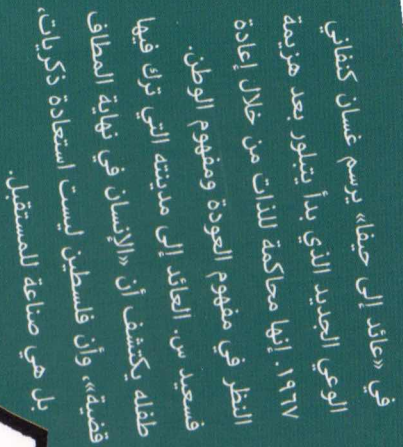 في «عائد إلى حيفا» يرسم غسان كنفاني
الوعي الجديد الذي بدأ يتبلور بعد هزيمة
١٩٦٧. إنها محاكمة للذات من خلال إعادة
النظر في مفهوم العودة ومفهوم الوطن.
فسعيد س. العائد إلى مدينته التي ترك فيها
طفله يكتشف أن «الإنسان في نهاية المطاف
قضية»، وأن فلسطين ليست استعادة ذكريات،
بل هي صناعة للمستقبل.